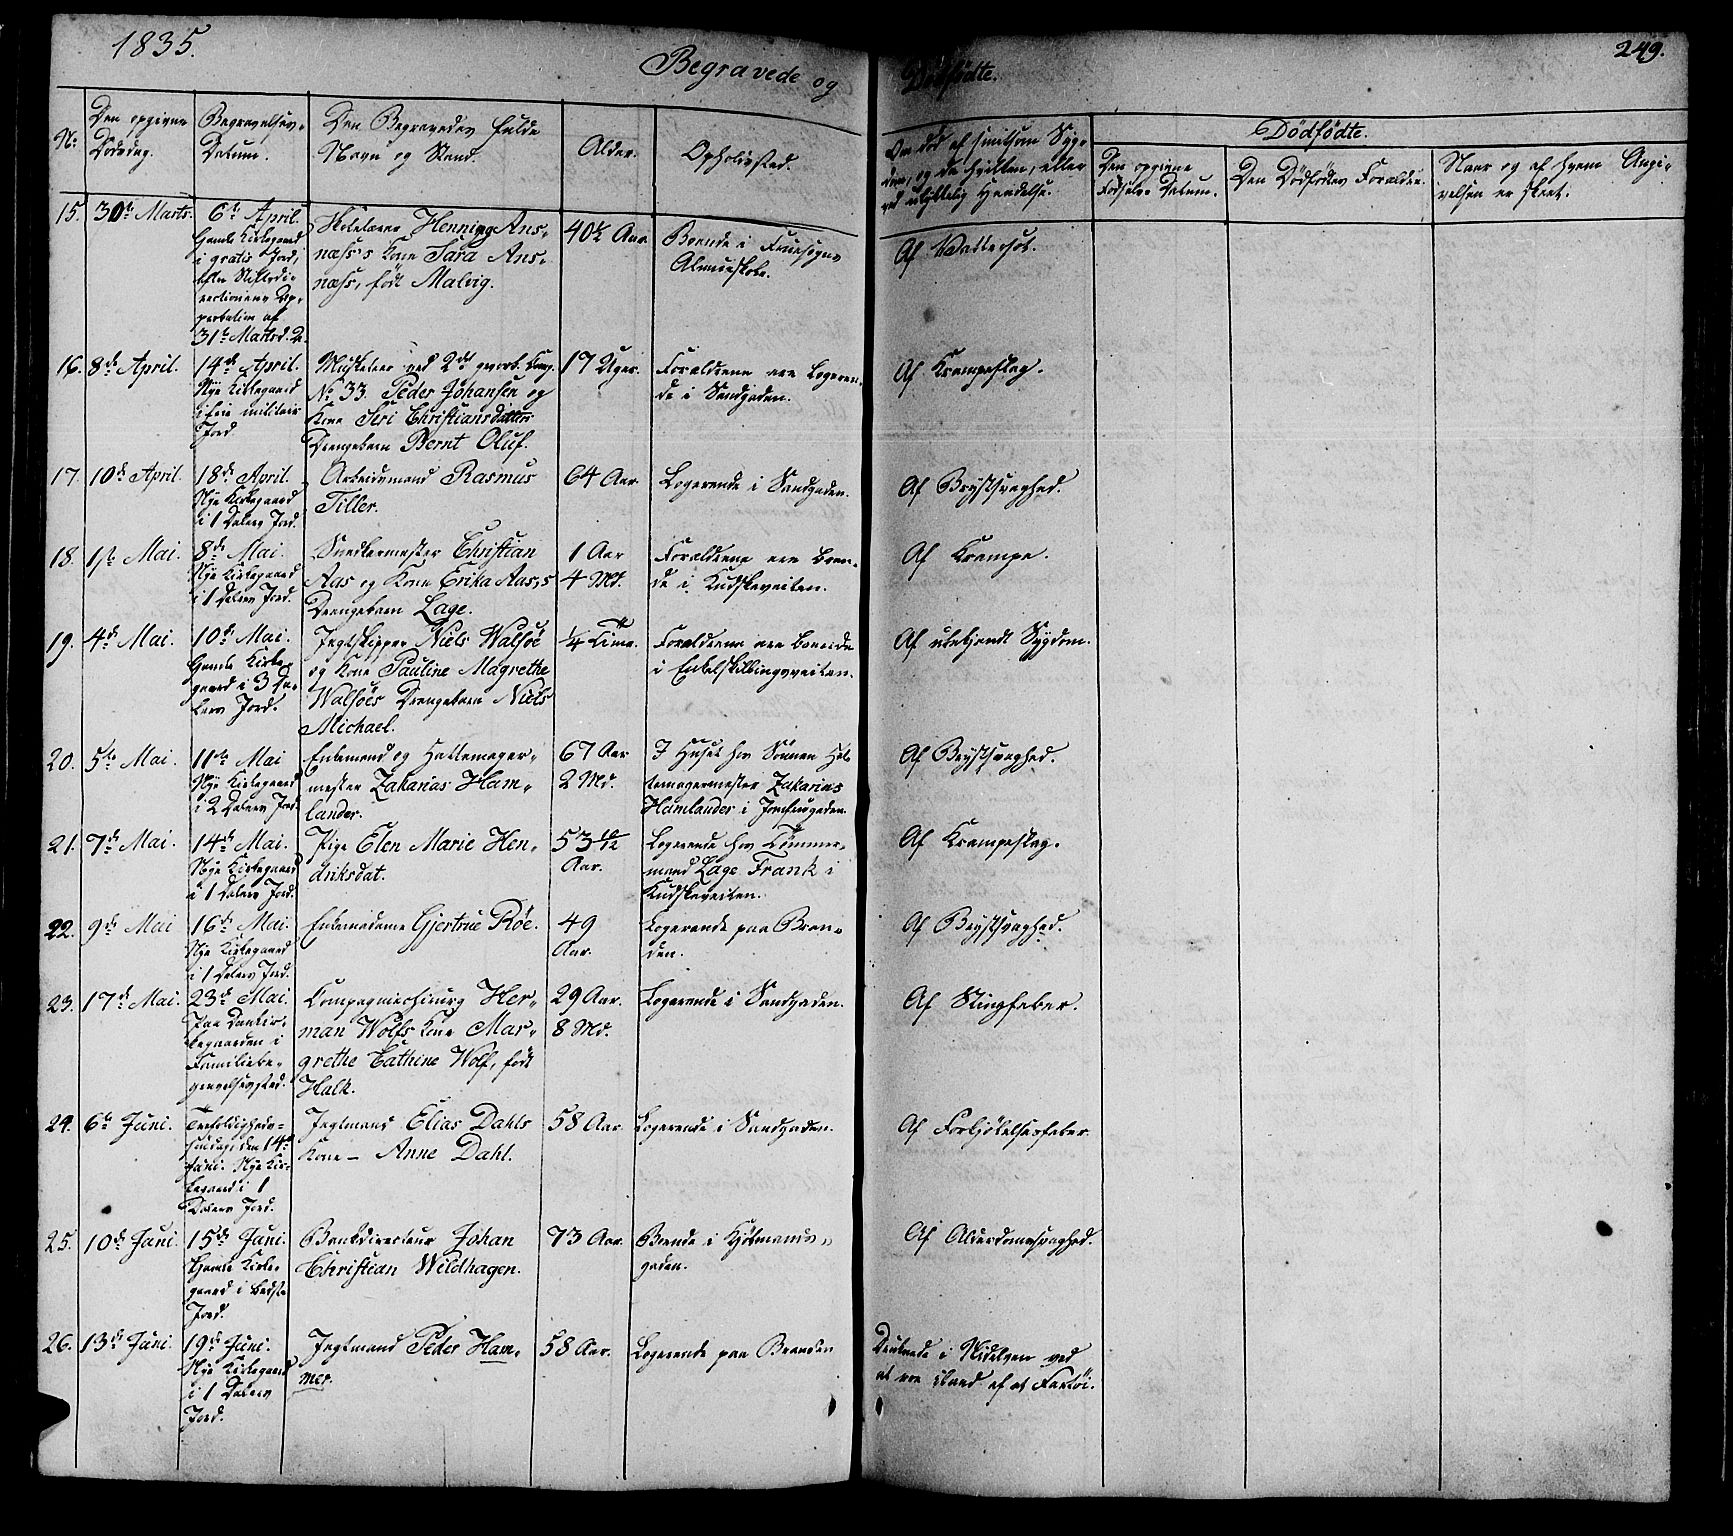 1835.
249.
Begravede og Dødfødte.
No
Den opgivne Dödsdag.
Begravelses-Datum.
Den Begravedes fulde Navn og Stand.
Alder.
Opholdssted.
Om död af smitsom Sygdom, og da hvilken, eller ved ulykkelig Hendelse.
Dödfödte.
Den opgivne Födsels Datum.
Den Dödfödtes Forældre.
Naar og af hvem Angivelsen er skeet.
15. 30te Marts.
6te April.
Gamle Kirkegaard
i gratis Jord,
efter Stiftsdi-
rectionens
31te Marts d. A.
Skolelærer Henning Ans-
næss's Kone Sara Ans-
næss, født Malvig.
40½ Aar.
Boende i Fruesogns
Almueskole.
Af Vattersot.
16. 8de April.
14de April.
Nye Kirkegaard
i frie militair
Jord.
Musketeer ved 2det gevorb. Comp.
No 33. Peder Johansen og
Kone Siri Christiansdatters
Drengebarn Bernt Oluf.
17 Uger.
Forældrene ere Logeren-
de i Sandgaden.
Af Krampeslag.
17. 10de April.
18de April.
Nye Kirkegaard
i 1 Dalers Jord.
Arbeidsmand Rasmus
Tiller.
64 Aar.
Logerende i Sandgaden.
Af Brystsvaghed.
18. 1ste Mai.
8de Mai.
Nye Kirkegaard
i 1 Dalers Jord.
Snedkermester Christian
Aas og Kone Erika Aas's
Drengebarn Lage.
1 Aar
4 Md.
Forældrene ere boen-
de i Kudskeveiten.
Af Krampe.
19. 4de Mai.
10de Mai.
Gamle Kirke-
gaard i 3 Da-
lers Jord.
Jegtskipper Niels Walsöe
og Kone Pauline Magrethe
Walsöes Drengebarn Niels
Michael.
¼ Time.
Forældrene ere boende
i Enkelskillingsveiten.
Af ubekjendt Sygdom.
20. 5te Mai.
11te Mai
Nye Kirkegaard
i 2 Dalers Jord.
Enkemand og Hattemager-
mester Zakarias Ham-
lander.
67 Aar
2 Md.
I Huset hos Sönnen Hat-
temagermester Zakarias
Hamlander i Jomfrugaden.
Af Brystsvaghed.
21. 7de Mai.
14de Mai.
Nye Kirkegaard
i 1 Dalers Jord.
Pige Elen Marie Hen-
driksdat.
53 10/12
Aar.
Logerende hos Tömmer-
mand Lage Frank i
Kudskeveiten.
Af Krampeslag.
22. 9de Mai
16de Mai.
Nye Kirkegaard
i 1 Dalers Jord.
Enkemadame Gjertrue Röe.
49
Aar.
Logerende paa Bran-
den.
Af Brystsvaghed.
23. 17de Mai.
23de Mai.
Paa Domkir-
kegaarden i
Familiebe-
gravelsessted.
Compagniechirurg Her-
man Wolfs Kone Mar-
grethe Cathine Wolf, født
Halk.
29 Aar.
8 Md.
Logerende i Sandgaden.
Af Stingfeber.
24. 6te Juni.
Trefoldigheds-
söndag den 14de
Juni. Nye Kir-
kegaard i 1
Dalers Jord.
Jegtmand Elias Dahls
Kone - Anne Dahl.
58 Aar.
Logerende i Sandgaden.
Af Forkjölelsesfeber.
25. 10de Juni.
15de Juni.
Gamle Kirke-
gaard i bedste
Jord.
Bankdirecteur Johan
Christian Wildhagen.
73 Aar.
Boende i Kjöbmands-
gaden.
Af Alderdomssvaghed.
26. 13de Juni.
19de Juni.
Nye Kirkegaard
i 1 Dalers
Jord.
Jegtmand Peder Ham-
mer.
58 Aar.
Logerende paa Branden
Druknede i Nidelven ved
at af et Fartöi.